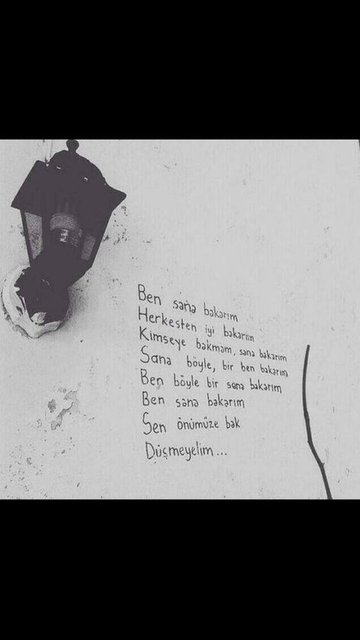 Ben sana bakarım
Herkesten iyi bakarım
Kimseye bakmam, sana bakarım
Sana böyle, bir ben bakarım
Ben böyle bir sana bakarım
Ben sana bakarım
Sen önümüze bak
Düşmeyelim...